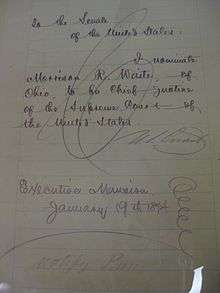 To the Senate
of the United States.
I nominate
Morrison R. Waite, of
Ohio, to be Chief Justice
of the Supreme Court of
the United States
U. S. Grant
Executive Mansion,
January 19th 1874